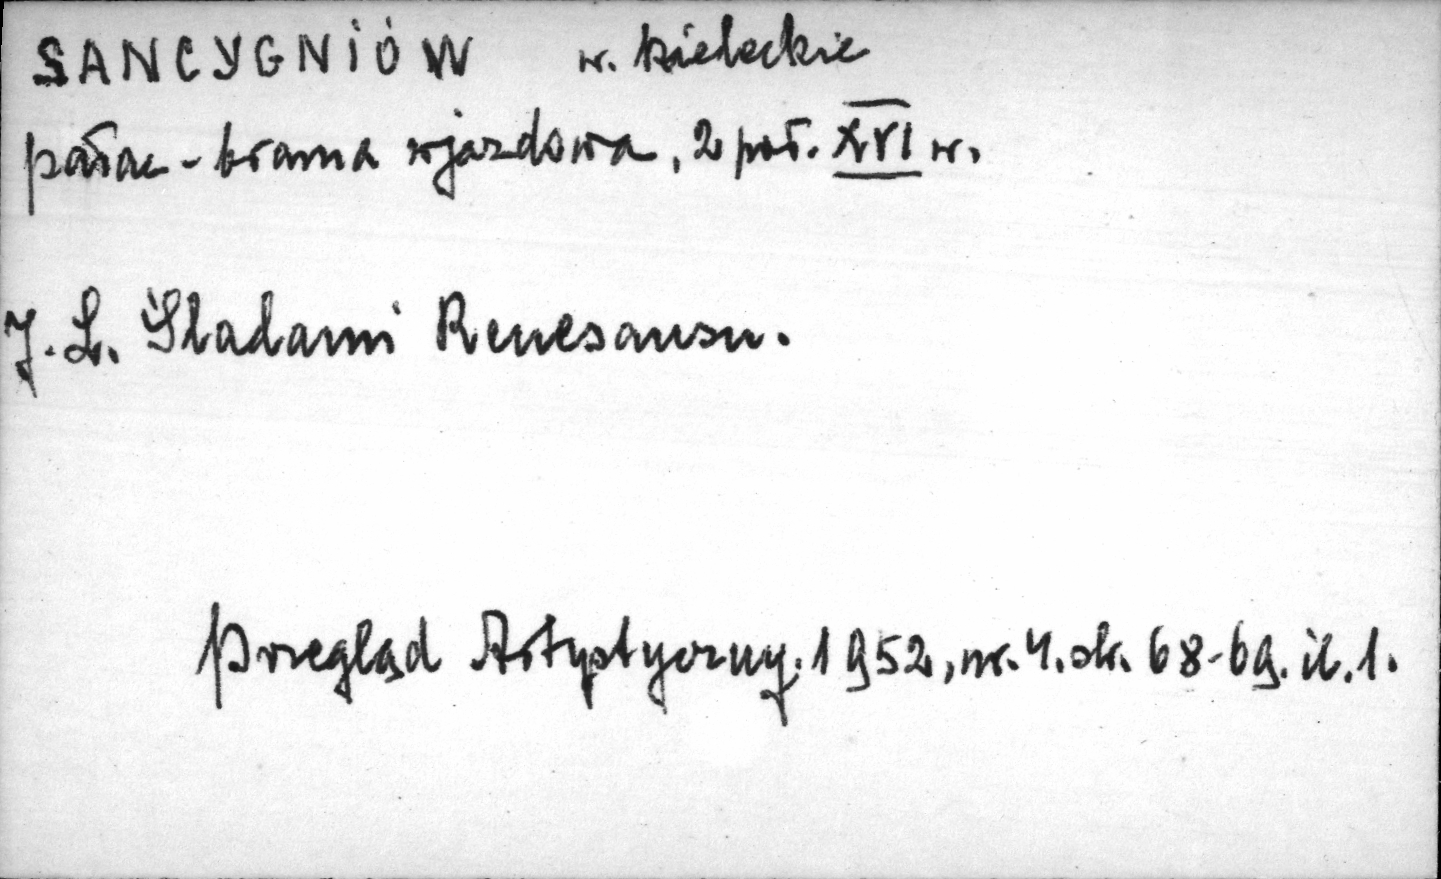 SANCYGNIÓW w. kieleckie
pałac - brama wjazdowa, 2 poł. XVI w.
J. L. Śladami Renesansu.
Przegląd Artystyczny. 1952, nr. 4. str. 68-69. il. 1.